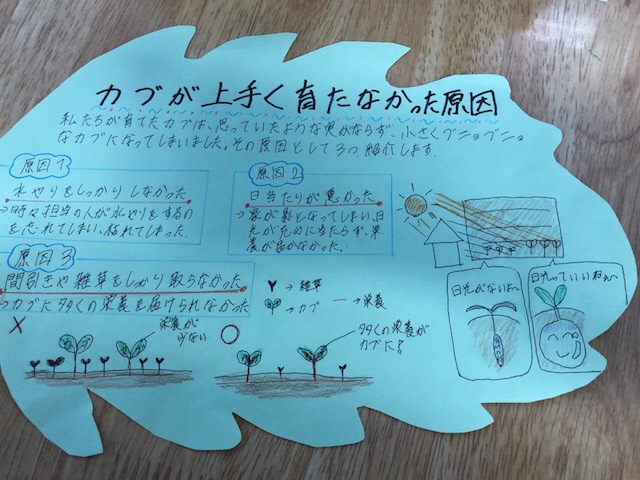 カブが上手く育たなかった原因
私たちが育てたカブは、思っていたような実がならず、小さくブニョブニョ
なカブになってしまいました。その原因として3つ紹介します。
原因1
水やりをしっかりしなかった
→時々担当の人が水やりをするの
を忘れてしまい、枯れてしまった。
原因2
日当たりが悪かった
→家が影となってしまい、日
光が元のに当たらず、栄
養が届かなかった。
日光がないよ〜
日光っていいねぇ〜
原因3
間引きや雑草をしっかり取らなかった
→カブに多くの栄養を届けられなかった
→雑草
→カブ
→栄養
×
栄養が
少ない
○
多くの栄養が
カブに!